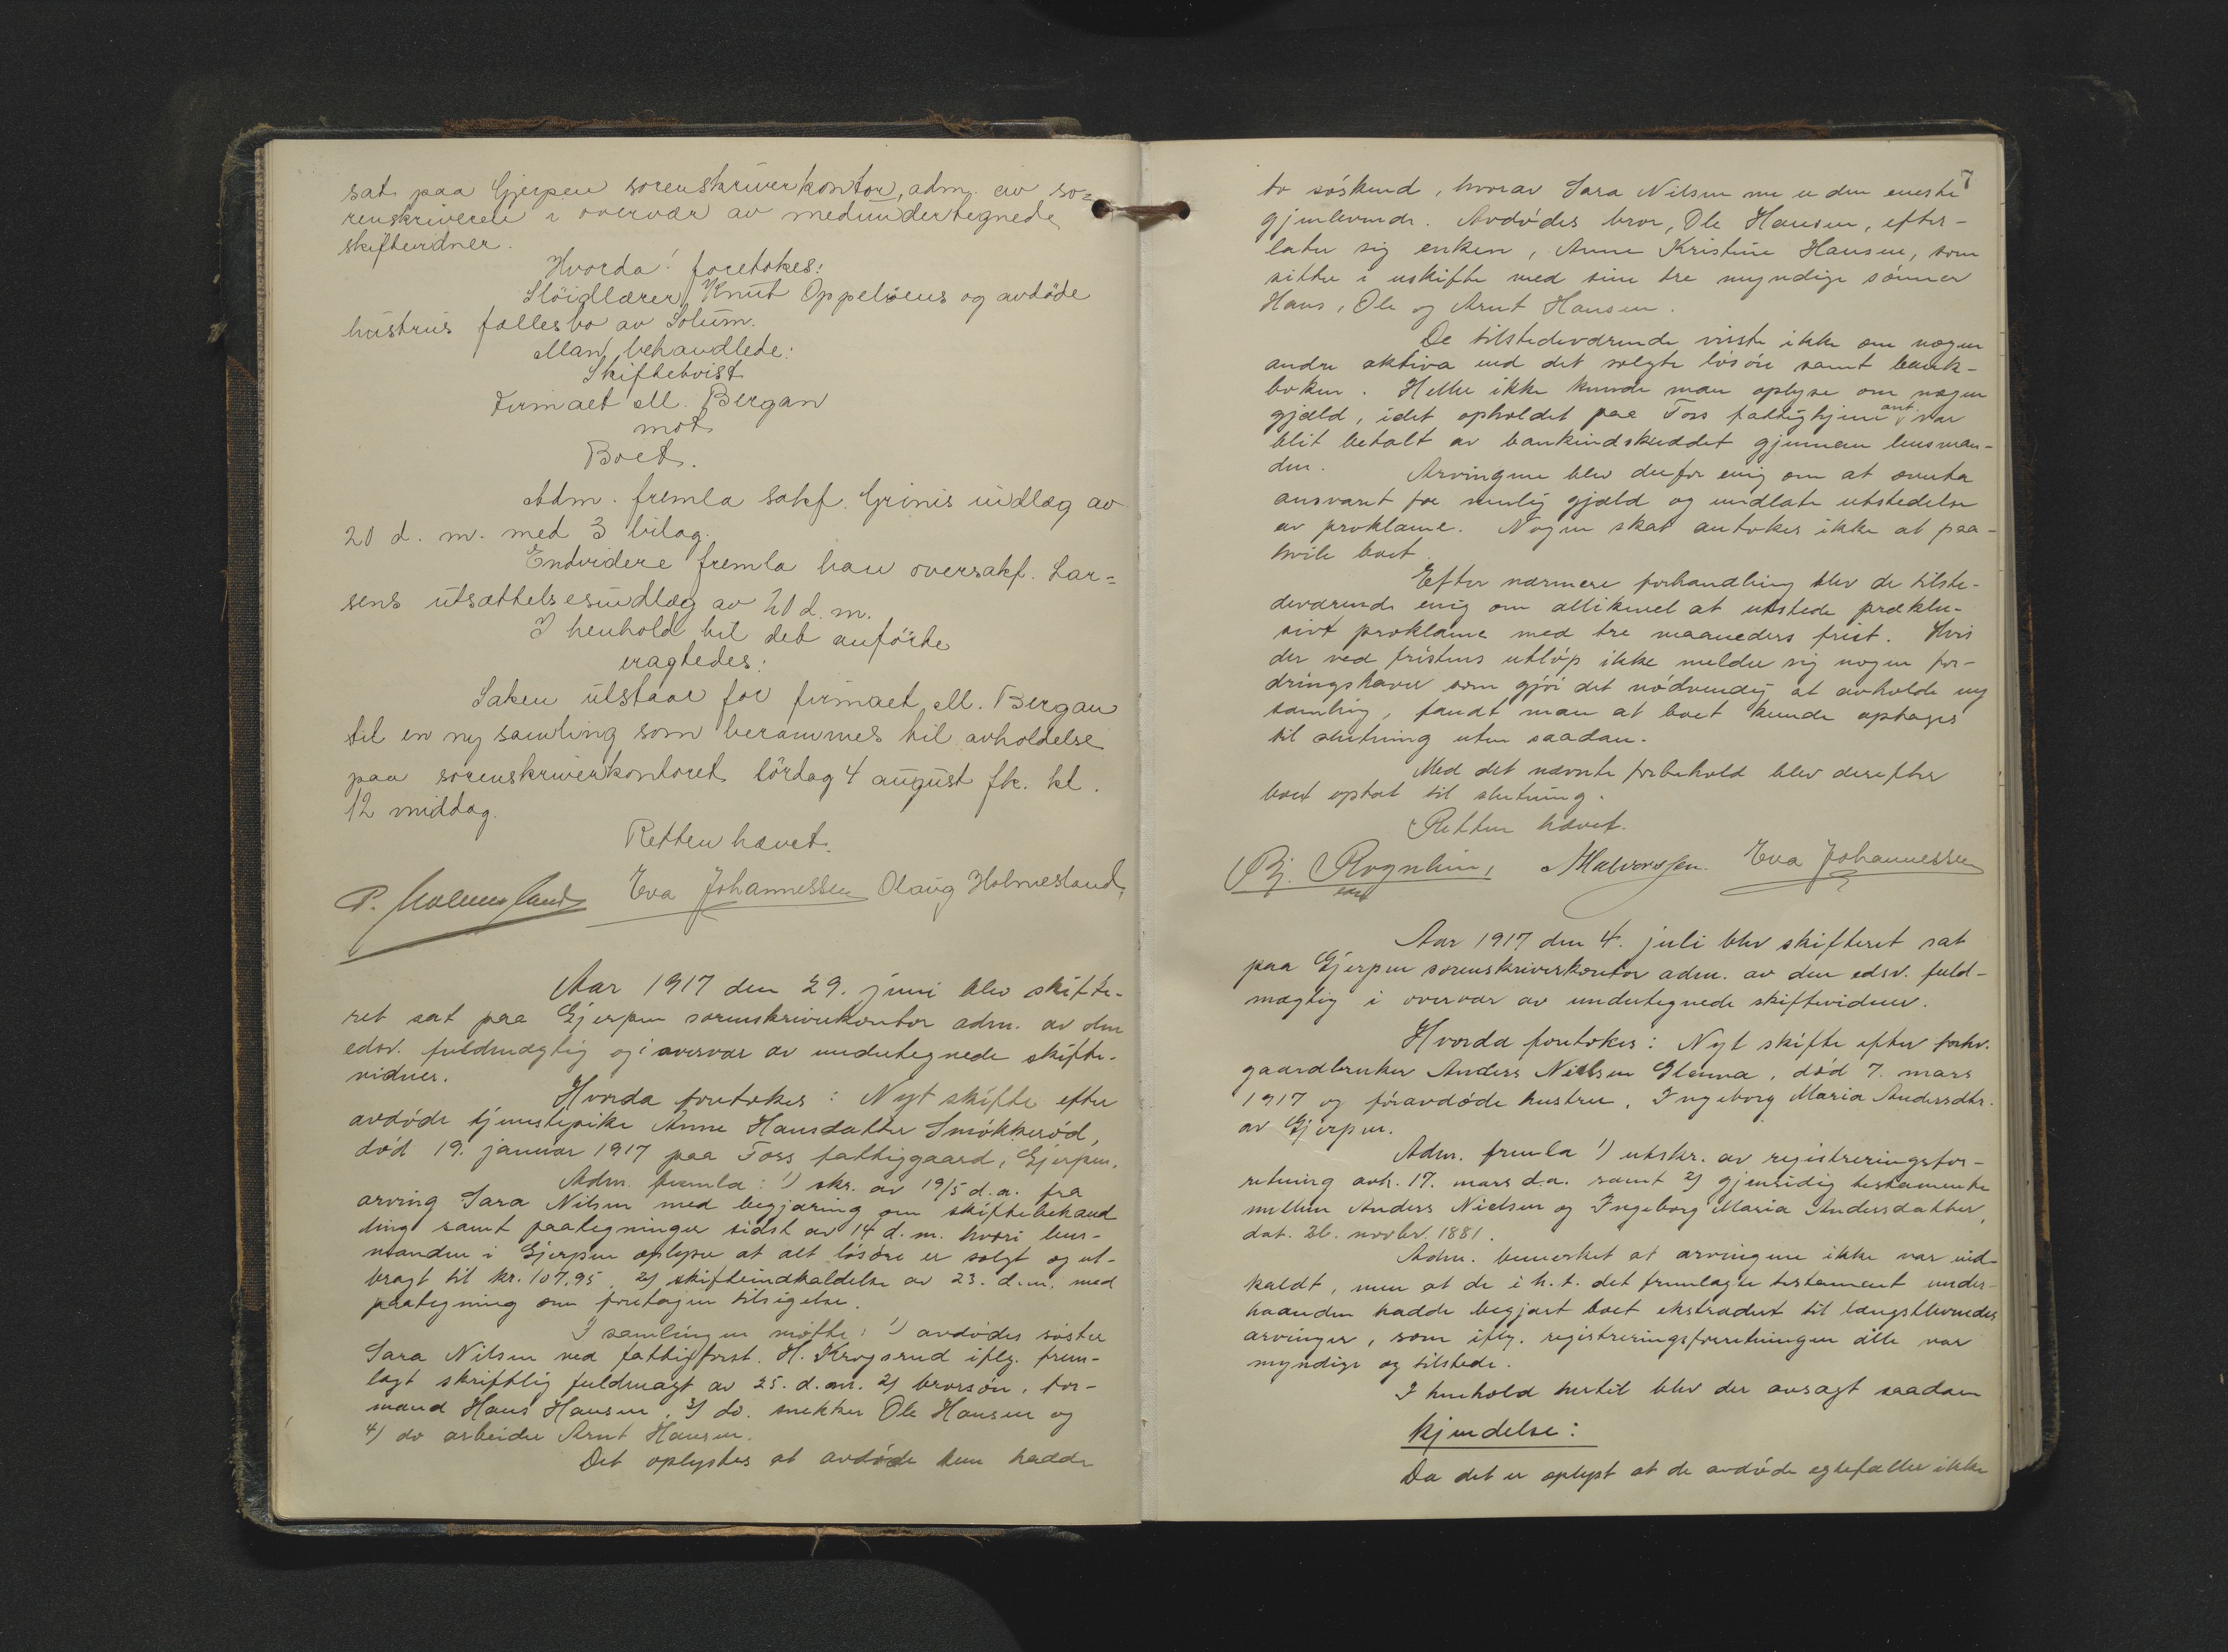 sat paa Gjerpen sorenskriverkontor, adm. av so=
renskriveren i overvær av medundertegnede
skiftevidner.
Hvorda foretokes:
Slöidlærer Knut Oppelöens og avdöde
hustrus fællesbo av Solum.
Man behandlede:
Skiftetvist
Firmaet M. Bergan
mot
Boet.
Adm. fremla sakf. Grinis indlæg av
20 d. m. med 3 bilag.
Endvidere fremla han oversakf. Lar=
sens utsættelsesindlæg av 20 d. m.
I henhold til det anförte
eragtedes:
Saken utstaar for firmaet M. Bergan
til en ny samling som berammes til avholdelse
paa sorenskriverkontoret lördag 4 august fk. kl.
12 middag.
Retten hævet.
P. Holmesland Eva Johannessen Olaug Holmesland,
Aar 1917 den 29. juni blev skifte-
ret sat paa Gjerpen sorenskriverkontor adm. av den
edsv. fuldmægtig og i overvær av undertegnede skifte-
vidner.
Hvorda foretokes: Nyt skifte efter
avdøde tjenestepike Anne Hansdatter Smökkeröd,
död 19. januar 1917 paa Foss fattiggaard, Gjerpen.
Adm. fremla: 1) skr. av 19/5 d.a. fra
arving Sara Nilsen med begjæring om skiftebehand
ling samt paategninger sidst av 14 d. m. hvori lens-
manden i Gjerpen oplyser at alt lösöre er solgt og ut-
bragt til kr. 107.95. 2) skifteindkaldelse av 23. d.m. med
paategning om foretagen tilsigelse.
I samlingen mötte: 1) avdödes söster
Sara Nilsen ved fattigforst. H. Krogsrud iflg. frem-
lagt skriftlig fuldmagt av 25. d. m. 2) brorsön, for-
mand Hans Hansen, 3) do. snekker Ole Hansen og
4) do arbeider Arnt Hansen.
Det oplystes at avdöde kun hadde
7
to söskend, hvorav Sara Nilsen nu er den eneste
gjenlevende. Avdödes bror, Ole Hansen, efter-
later sig enken, Anne Kristine Hansen, som
sitter i uskifte med sine tre myndige sönner
Hans, Ole og Arnt Hansen.
De tilstedeværende visste ikke om nogen
andre aktiva end det solgte lösöre samt bank-
boken. Heller ikke kunde man oplyse om nogen
gjæld, idet opholdet paa Foss fattighjem ant. var
blit betalt av bankindskuddet gjennem lensman-
den.
Arvingene blev derfor enig om at overta
ansvaret for mulig gjæld og undlate utstedelse
av proklama. Nogen skat antokes ikke at paa-
hvile boet.
Efter nærmere forhandling blev de tilste-
deværende enig om allikevel at utstede præklu-
sivt proklama med tre maaneders frist. Hvis
der ved fristens utløp ikke melder sig nogen for-
dringshaver som gjör det nödvendig at avholde ny
samling, fandt man at boet kunde optages
til slutning uten saadan.
Med det nævnte forbehold blev derefter
boet optat til slutning.
Retten hævet.
Bj. Rognlien, AHalvorsen. Eva Johannessen
Aar 1917 den 4. juli blev skifteret sat
paa Gjerpen sorenskriverkontor adm. av den edsv. fuld-
mægtig i overvær av undertegnede skiftevidner.
Hvorda foretokes: Nyt skifte efter forhv.
gaardbruker Anders Nielsen Glenna, död 7. mars
1917 og föravdöde hustru, Ingeborg Maria Andersdtr.
av Gjerpen.
Adm. fremla 1) utskr. av registreringsfor-
retning avh. 17. mars d.a. samt 2) gjensidig testamente
mellem Anders Nielsen og Ingeborg Maria Andersdatter,
dat. 26. novbr. 1881.
Adm. bemerket at arvingene ikke var ind-
kaldt, men at de i h. t. det fremlagte testament under-
haanden hadde begjært boet ekstradert til længstlevendes
arvinger, som iflg. registreringsforretningen alle var
myndige og tilstede.
I henhold hertil blev der avsagt saadan
kjendelse:
Da det er oplyst at de avdöde egtefæller ikke